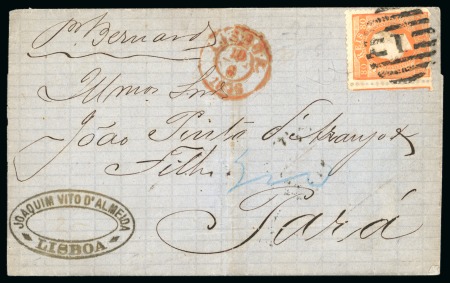 pr. Bernard
Illmos Snrs
João Pinto d'Araujo &
Filh
Pará
JOAQUIM VITO D'ALMEIDA
LISBOA
1